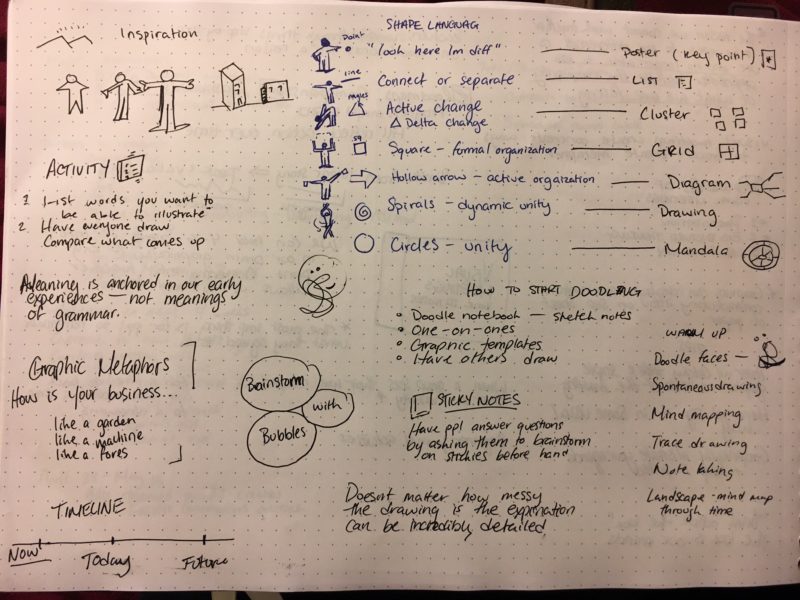 Inspiration
ACTIVITY
1 List words you want to
be able to illustrate"
2 Have everyone draw
Compare what comes up
Meaning is anchored in our early
experiences — not meanings
of grammar.
Graphic Metaphors
How is your business...
like a garden
like a machine
like a fores
TIMELINE
Now
Today
Future
SHAPE LANGUAG
Point
"look here Im diff" Poster (key point)
line
Connect or separate LIST
angles
Active change Cluster
Δ Delta change
sq
Square - formal organization GRID
Hollow arrow - active orgaization Diagram
Spirals - dynamic unity Drawing
Circles - unity Mandala
HOW TO START DOODLING
• Doodle notebook — sketch notes
• One-on-ones
• Graphic templates
• Have others draw
Brainstorm
with
Bubbles
STICKY NOTES
Have ppl answer questions
by asking them to brainstorm
on stickies before hand
Doesnt matter how messy
the drawing is the
can be incredibly detailed
WARM UP
Doodle faces —
Spontaneous drawing
Mind mapping
Trace drawing
Note taking
Landscape - mind map
through time